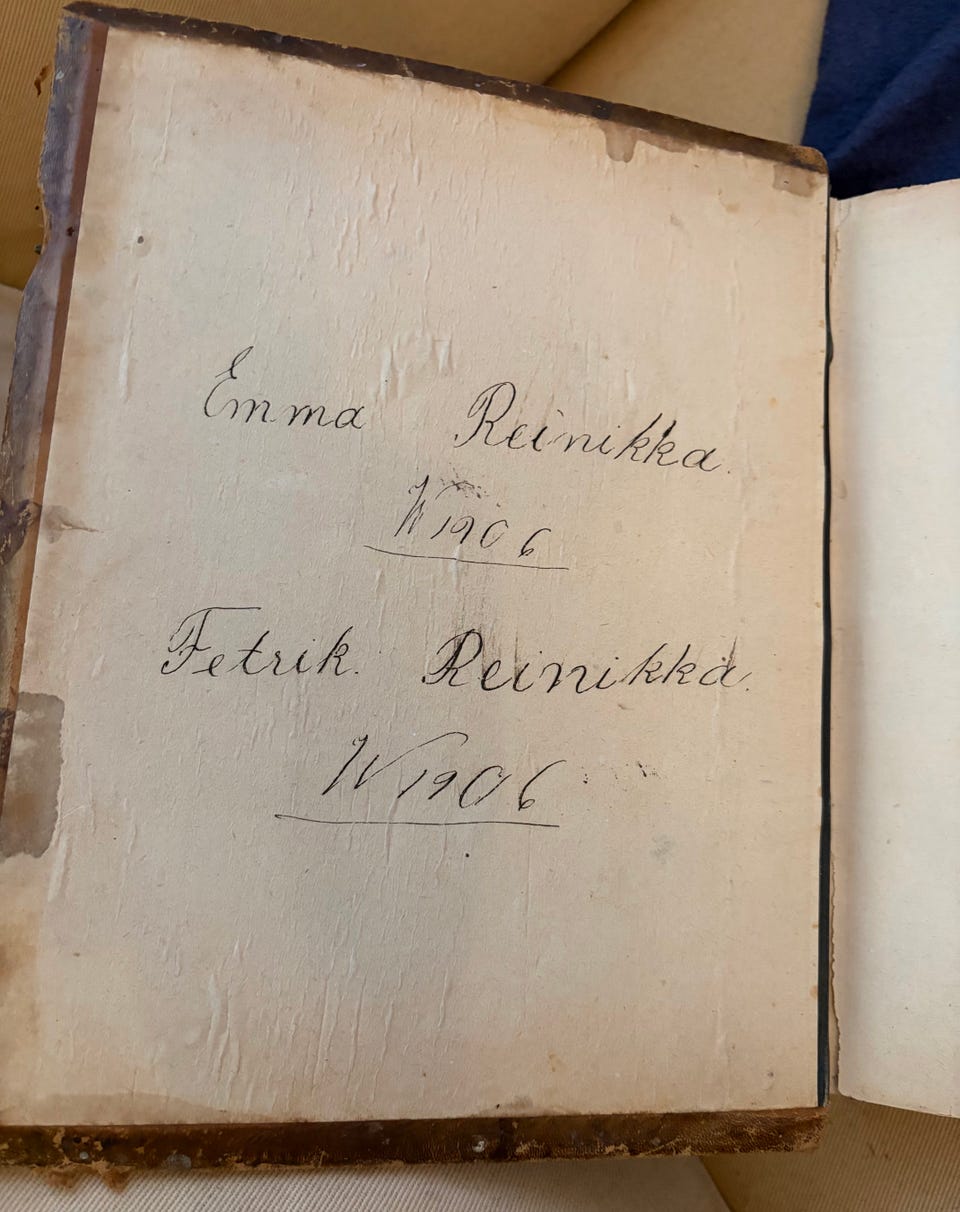 Emma Reinikka.
W 1906
Fetrik. Reinikka.
W 1906